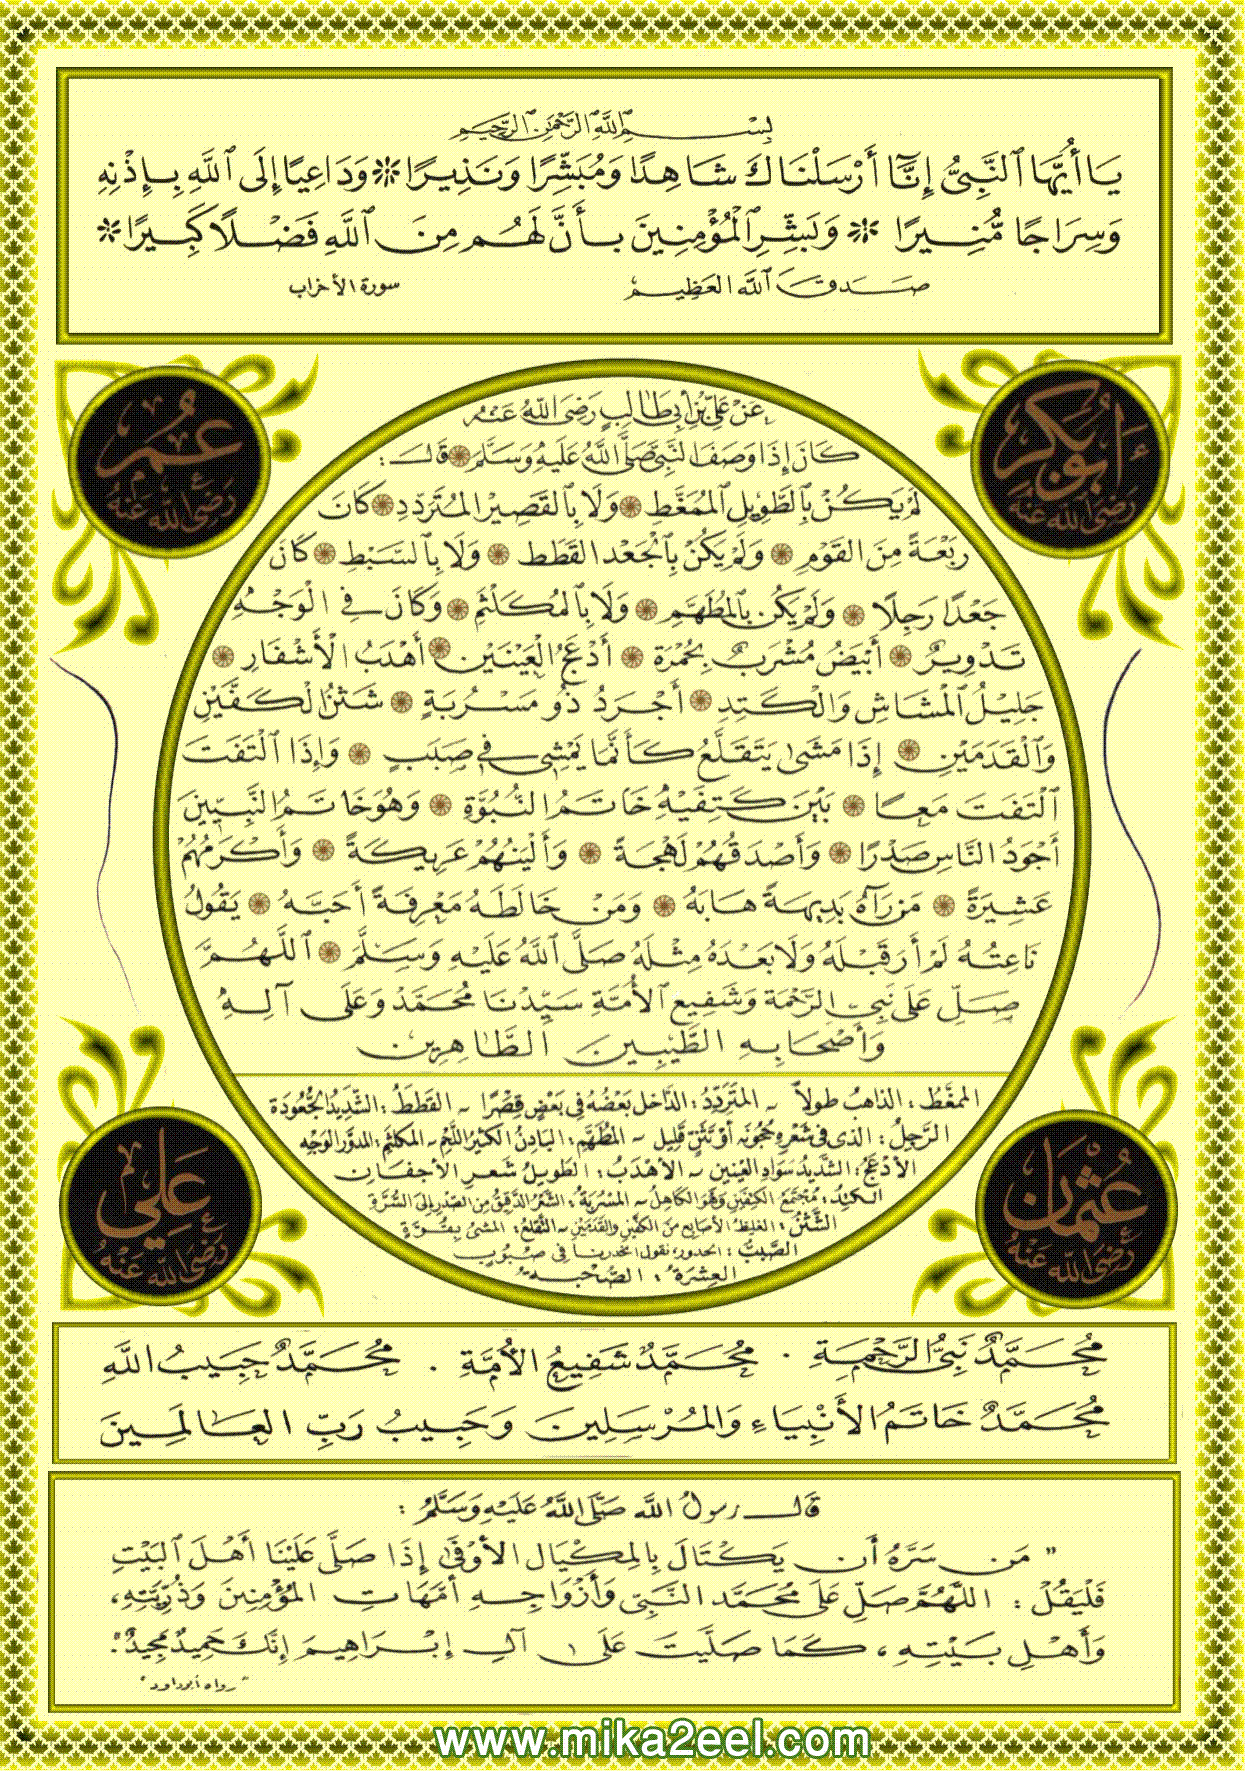 بِسْمِ اللَّهِ الرَّحْمَنِ الرَّحِيمِ
يَا أَيُّهَا النَّبِيُّ إِنَّا أَرْسَلْنَاكَ شَاهِدًا وَمُبَشِّرًا وَنَذِيرًا * وَدَاعِيًا إِلَى اللَّهِ بِإِذْنِهِ
وَسِرَاجًا مُّنِيرًا * وَبَشِّرِ الْمُؤْمِنِينَ بِأَنَّ لَهُم مِنَ اللَّهِ فَضْلًا كَبِيرًا *
صَدَقَ اللَّهُ العَظِيم سورة الأحزاب
أبوبكر رضي الله عنه
عمر رضي الله عنه
عَنْ عَلِيِّ بْنِ أَبِي طَالِبٍ رَضِيَ اللَّهُ عَنْهُ
كَانَ إِذَا وَصَفَ النَّبِيَّ صَلَّى اللَّهُ عَلَيْهِ وَسَلَّمَ قَالَ :
لَمْ يَكُنْ بِالطَّوِيلِ الْمُمَغَّطِ وَلَا بِالْقَصِيْرِ الْمُتَرَدِّدِ كَانَ
رَبْعَةً مِنَ القَوْمِ وَلَمْ يَكُنْ بِالْجَعْدِ القَطَطِ وَلَا بِالسَّبْطِ كَانَ
جَعْدًا رَجِلًا وَلَمْ يَكُنْ بِالْمُطَهَّمِ وَلَا بِالْمُكَلْثَمِ وَكَانَ فِي الْوَجْهِ
تَدْوِيرٌ أَبْيَضُ مُشْرَبٌ بِحُمْرَةٍ أَدْعَجُ الْعَيْنَيْنِ أَهْدَبُ الْأَشْفَارِ
جَلِيلُ الْمُشَاشِ وَالْكَتِدِ أَجْرَدُ ذُو مَسْرُبَةٍ شَثْنُ الْكَفَّيْنِ
وَالْقَدَمَيْنِ إِذَا مَشَى يَتَقَلَّعُ كَأَنَّمَا يَمْشِي فِي صَبَبٍ وَإِذَا الْتَفَتَ
الْتَفَتَ مَعًا بَيْنَ كَتِفَيْهِ خَاتَمُ النُّبُوَّةِ وَهُوَ خَاتَمُ النَّبِيِّينَ
أَجْوَدُ النَّاسِ صَدْرًا وَأَصْدَقُهُمْ لَهْجَةً وَأَلْيَنُهُمْ عَرِيكَةً وَأَكْرَمُهُمْ
عَشِيرَةً مَنْ رَآهُ بَدِيهَةً هَابَهُ وَمَنْ خَالَطَهُ مَعْرِفَةً أَحَبَّهُ يَقُولُ
نَاعِتُهُ لَمْ أَرَ قَبْلَهُ وَلَا بَعْدَهُ مِثْلَهُ صَلَّى اللَّهُ عَلَيْهِ وَسَلَّمَ اللَّهُمَّ
صَلِّ عَلَى نَبِيِّ الرَّحْمَةِ وَشَفِيعِ الْأُمَّةِ سَيِّدِنَا مُحَمَّدٍ وَعَلَى آلِهِ
وَأَصْحَابِهِ الطَّيِّبِينَ الطَّاهِرِين
الممغَّطُ : الذاهبُ طولاً - المتَردِّدُ : الدَّاخل بَعْضُهُ في بَعْضٍ قِصَرًا - القَطَطُ : الشَّدِيدُ الجُعُودَة
الرَّجِلُ : الذي في شَعْرِهِ حُجُونَة أوْ تَثَنٍّ قَلِيل - المُطَهَّم : البَادِنُ الكَثِيرُ اللَّحْم - المُكلثَم : المدَوَّر الوَجْه
الأدْعَجُ : الشَّدِيدُ سَوَادِ العَيْنين - الأهْدَبُ : الطَّوِيلُ شَعَرِ الأجفان
الكتد : مُجْتَمَعُ الكَتِفَيْنِ وَهُوَ الكَاهِلُ - المَسْرُبَةُ : الشَّعْرُ الدَّقِيقُ مِنَ الصَّدْرِ إِلَى السُّرَّة
الشَّثْنُ : الغَلِيظُ الأصَابِع مِنَ الكَفَّيْنِ وَالقَدَمَيْنِ - التَّقَلُّع : المَشْيُ بِقُوَّة
الصَّبَبُ : الحدور، نقول انحَدرنا في صَبُوب
العِشْرَة : الصُّحْبَة
عثمان رضي الله عنه
علي رضي الله عنه
مُحَمَّدٌ نَبِيُّ الرَّحْمَةِ . مُحَمَّدٌ شَفِيعُ الأُمَّةِ . مُحَمَّدٌ حَبِيبُ اللَّه
مُحَمَّدٌ خَاتَمُ الأَنْبِيَاءِ وَالمُرْسَلِينَ وَحَبِيبُ رَبِّ العَالَمِينَ
قَالَ رسولُ اللَّه صَلَّى اللَّهُ عَلَيْهِ وَسَلَّمَ :
" مَن سَرَّهُ أَن يَكْتَالَ بِالمِكْيَالِ الأَوْفَى إِذَا صَلَّى عَلَيْنَا أَهْلَ البَيْتِ
فَلْيَقُلْ : اللَّهُمَّ صَلِّ عَلَى مُحَمَّدٍ النَّبِيِّ وَأَزْوَاجِهِ أُمَّهَاتِ المُؤْمِنِينَ وَذُرِّيَّتِهِ،
وَأَهْلِ بَيْتِهِ ، كَمَا صَلَّيْتَ عَلَى آلِ إِبْرَاهِيمَ إِنَّكَ حَمِيدٌ مَجِيدٌ".
"رواه أبو داود"
www.mika2eel.com